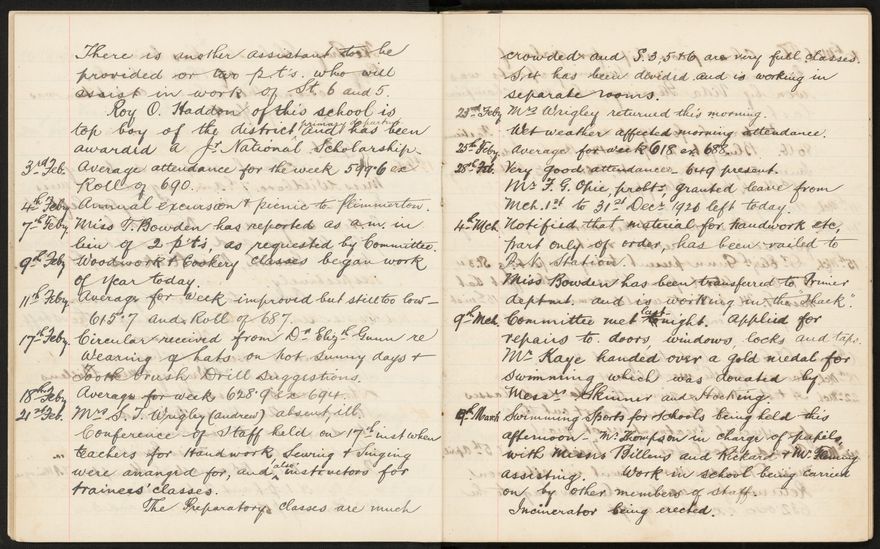 There is another assistant to be
provided or two p.t's. who will
assist in work of St. 6 and 5.
Roy O. Haddon of this school is
top boy of the district primary department and has been
awarded a Jr. National Scholarship.
3rd Feb. Average attendance for the week 599.6 ex
Roll of 690.
4th Feby Annual excursion & picnic to Plimmerton.
7th Feby Miss T. Bowden has reported as a.m. in
lieu of 2 p.t's, as requested by Committee.
9th Feby Woodwork & Cookery classes began work
of year today.
11th Feby Average for week improved but still too low —
615.7 and Roll of 687.
17th Feby. Circular received from Dr Elizth Gunn re
Wearing of hats on hot sunny days &
Tooth brush Drill suggestions.
18th Feby. Average for week 628.9 ex 694.
21st Feb. Mrs S. T. Wrigley (Andrew) absent ill.
Conference of Staff held on 17th inst when
teachers for Handwork, Sewing & Singing
were arranged for, and also instructors for
trainees' classes.
The Preparatory classes are much
crowded and S.3, 5 & 6 are very full classes.
S.4 has been divided and is working in
separate rooms.
23rd Feby Mrs Wrigley returned this morning.
Wet weather affected morning attendance.
25th Feby. Average for week 618 ex 688.
28th Feb Very good attendance — 649 present.
Mr F. G. Opie, probr. granted leave from
Mch. 1st to 31st Decr 1920 left today.
4th Mch. Notified that material for handwork etc,
part only of order, has been railed to
P.N. Station.
Miss Bowden has been transferred to Primer
deptmt, and is working in the "Shack".
9th Mch. Committee met last night. Applied for
repairs to doors, windows, locks and taps.
Mr Kaye handed over a gold medal for
Swimming which was donated by
Messrs Skinner and Hocking.
Swimming Sports for Schools being held this
afternoon — Mr Thompson in charge of pupils,
with Misses Billens and Rickard & Mr
assisting. Work in school being carried
on by other members of staff.
Incinerator being erected.